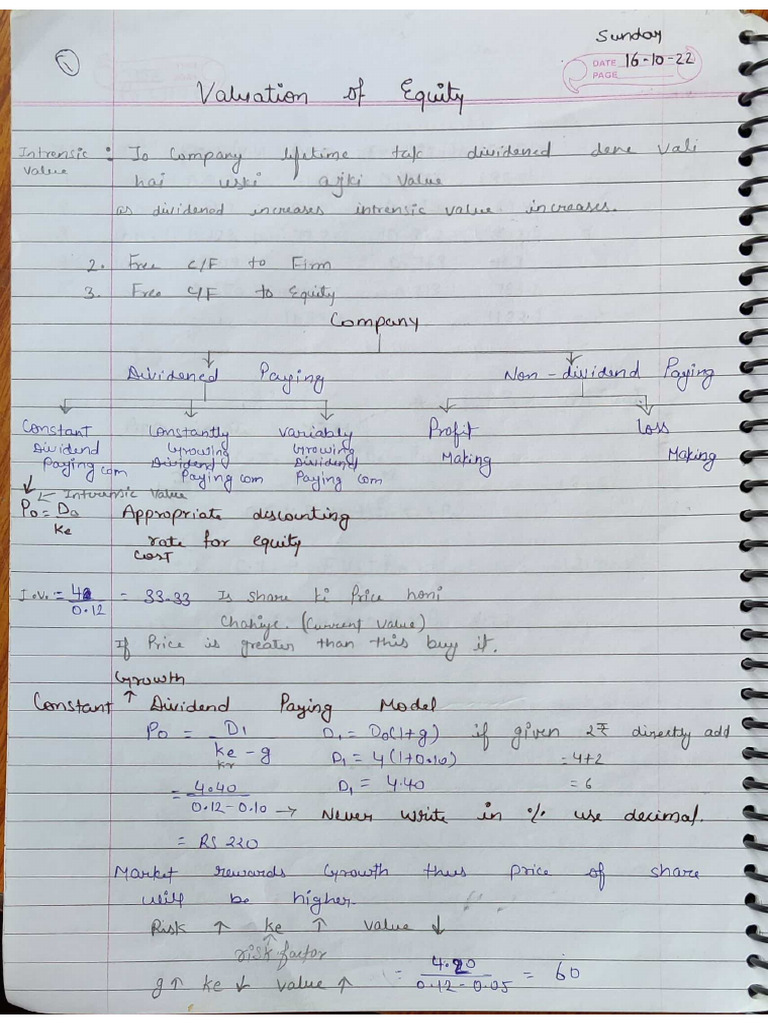 Sunday
1
DATE 16-10-22
PAGE
Valuation of Equity
Intrensic : Jo Company lifetime tak dividened dene vali
Value hai uski ajki value
as dividenod increases intrensic value increases.
2. Free C/F to Firm
3. Free C/F to Equity
Company
Dividened Paying Non-dividend Paying
Constant Constantly Variably Profit Loss
Dividend Growing Growing Making Making
Paying com Dividend Dividend
Paying com Paying com
Intrensic Value
P0 = D0 Appropriate discounting
ke rate for equity
cost
I.V. = 4 = 33.33 Is share ki Price honi
0.12 Chahiye. (Current Value)
If Price is greater than this buy it.
Growth
Constant ↑ Dividend Paying Model
P0 = D1 D1 = D0(1+g) if given 2₹ directly add
ke - g D1 = 4(1+0.10) = 4+2
kr
= 4.40 D1 = 4.40 = 6
0.12-0.10 → Never write in % use decimal.
= RS 220
Market rewards Growth thus price of share
will be higher.
Risk ↑ ke ↑ value ↓
risk factor
g↑ ke ↓ value ↑ = 4.20 = 60
0.12-0.05